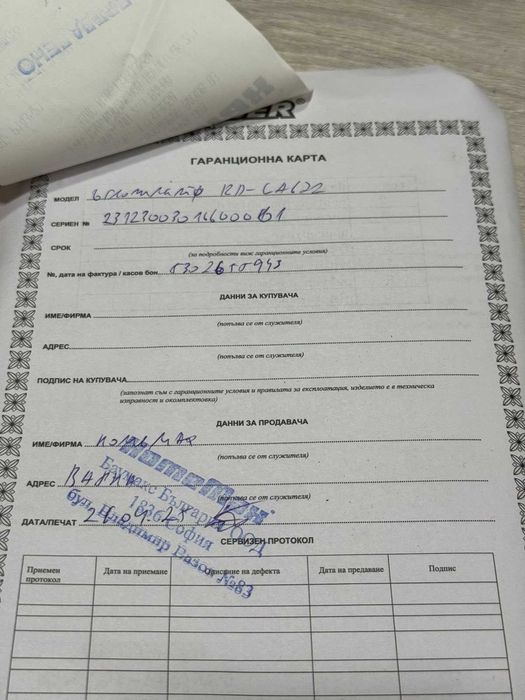 DER®
ГАРАНЦИОННА КАРТА
МОДЕЛ ъглошлайф RD-
СЕРИЕН №
СРОК
(за подробности виж гаранционните условия)
№, дата на фактура / касов бон
ДАННИ ЗА КУПУВАЧА
ИМЕ/ФИРМА
(попълва се от служителя)
АДРЕС
(попълва се от служителя)
ПОДПИС НА КУПУВАЧА
(запознат съм с гаранционните условия и правилата за експлоатация, изделието е в техническа
изправност и окомплектовка)
ДАННИ ЗА ПРОДАВАЧА
ИМЕ/ФИРМА
(попълва се от служителя)
АДРЕС ВАРНА
(попълва се от служителя)
ДАТА/ПЕЧАТ
HomeMax
Баумакс България ООД
1836 София
бул. Владимир Вазов №83
СЕРВИЗЕН ПРОТОКОЛ
Приемен протокол Дата на приемане Описание на дефекта Дата на предаване Подпис